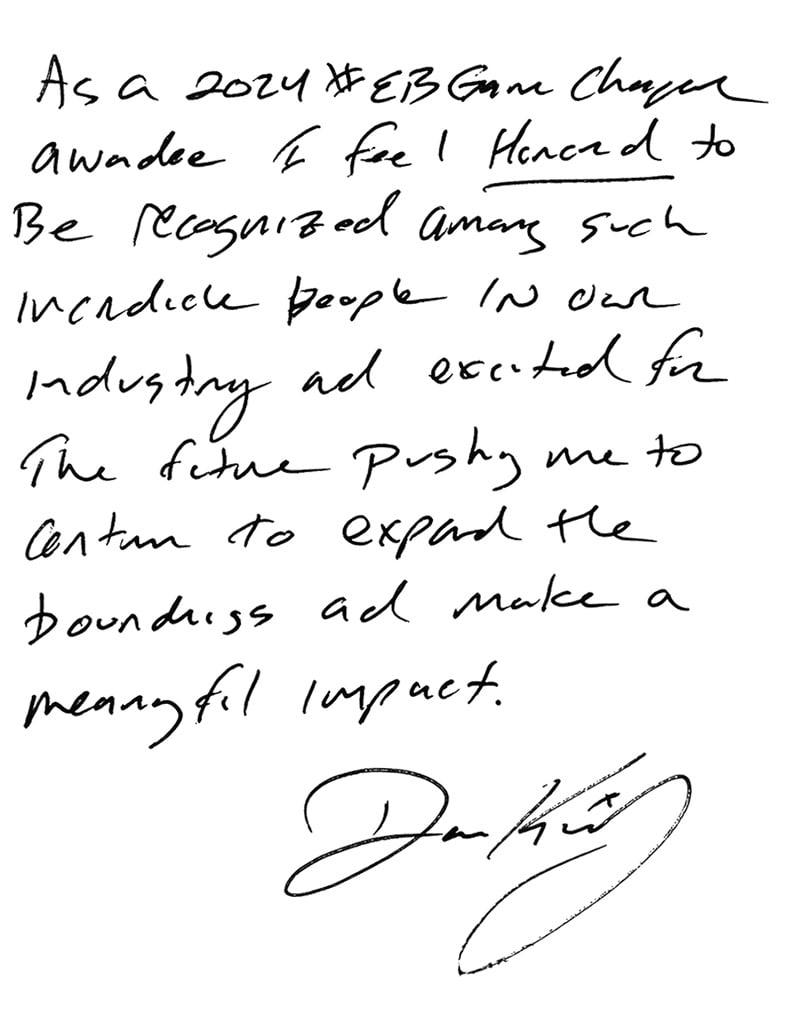 As a 2024 #EBGameChanger
awardee I feel Honored to
Be recognized among such
incredible people IN our
industry and excited for
The future pushing me to
continue to expand the
boundaries and make a
meaningful impact.
Dan